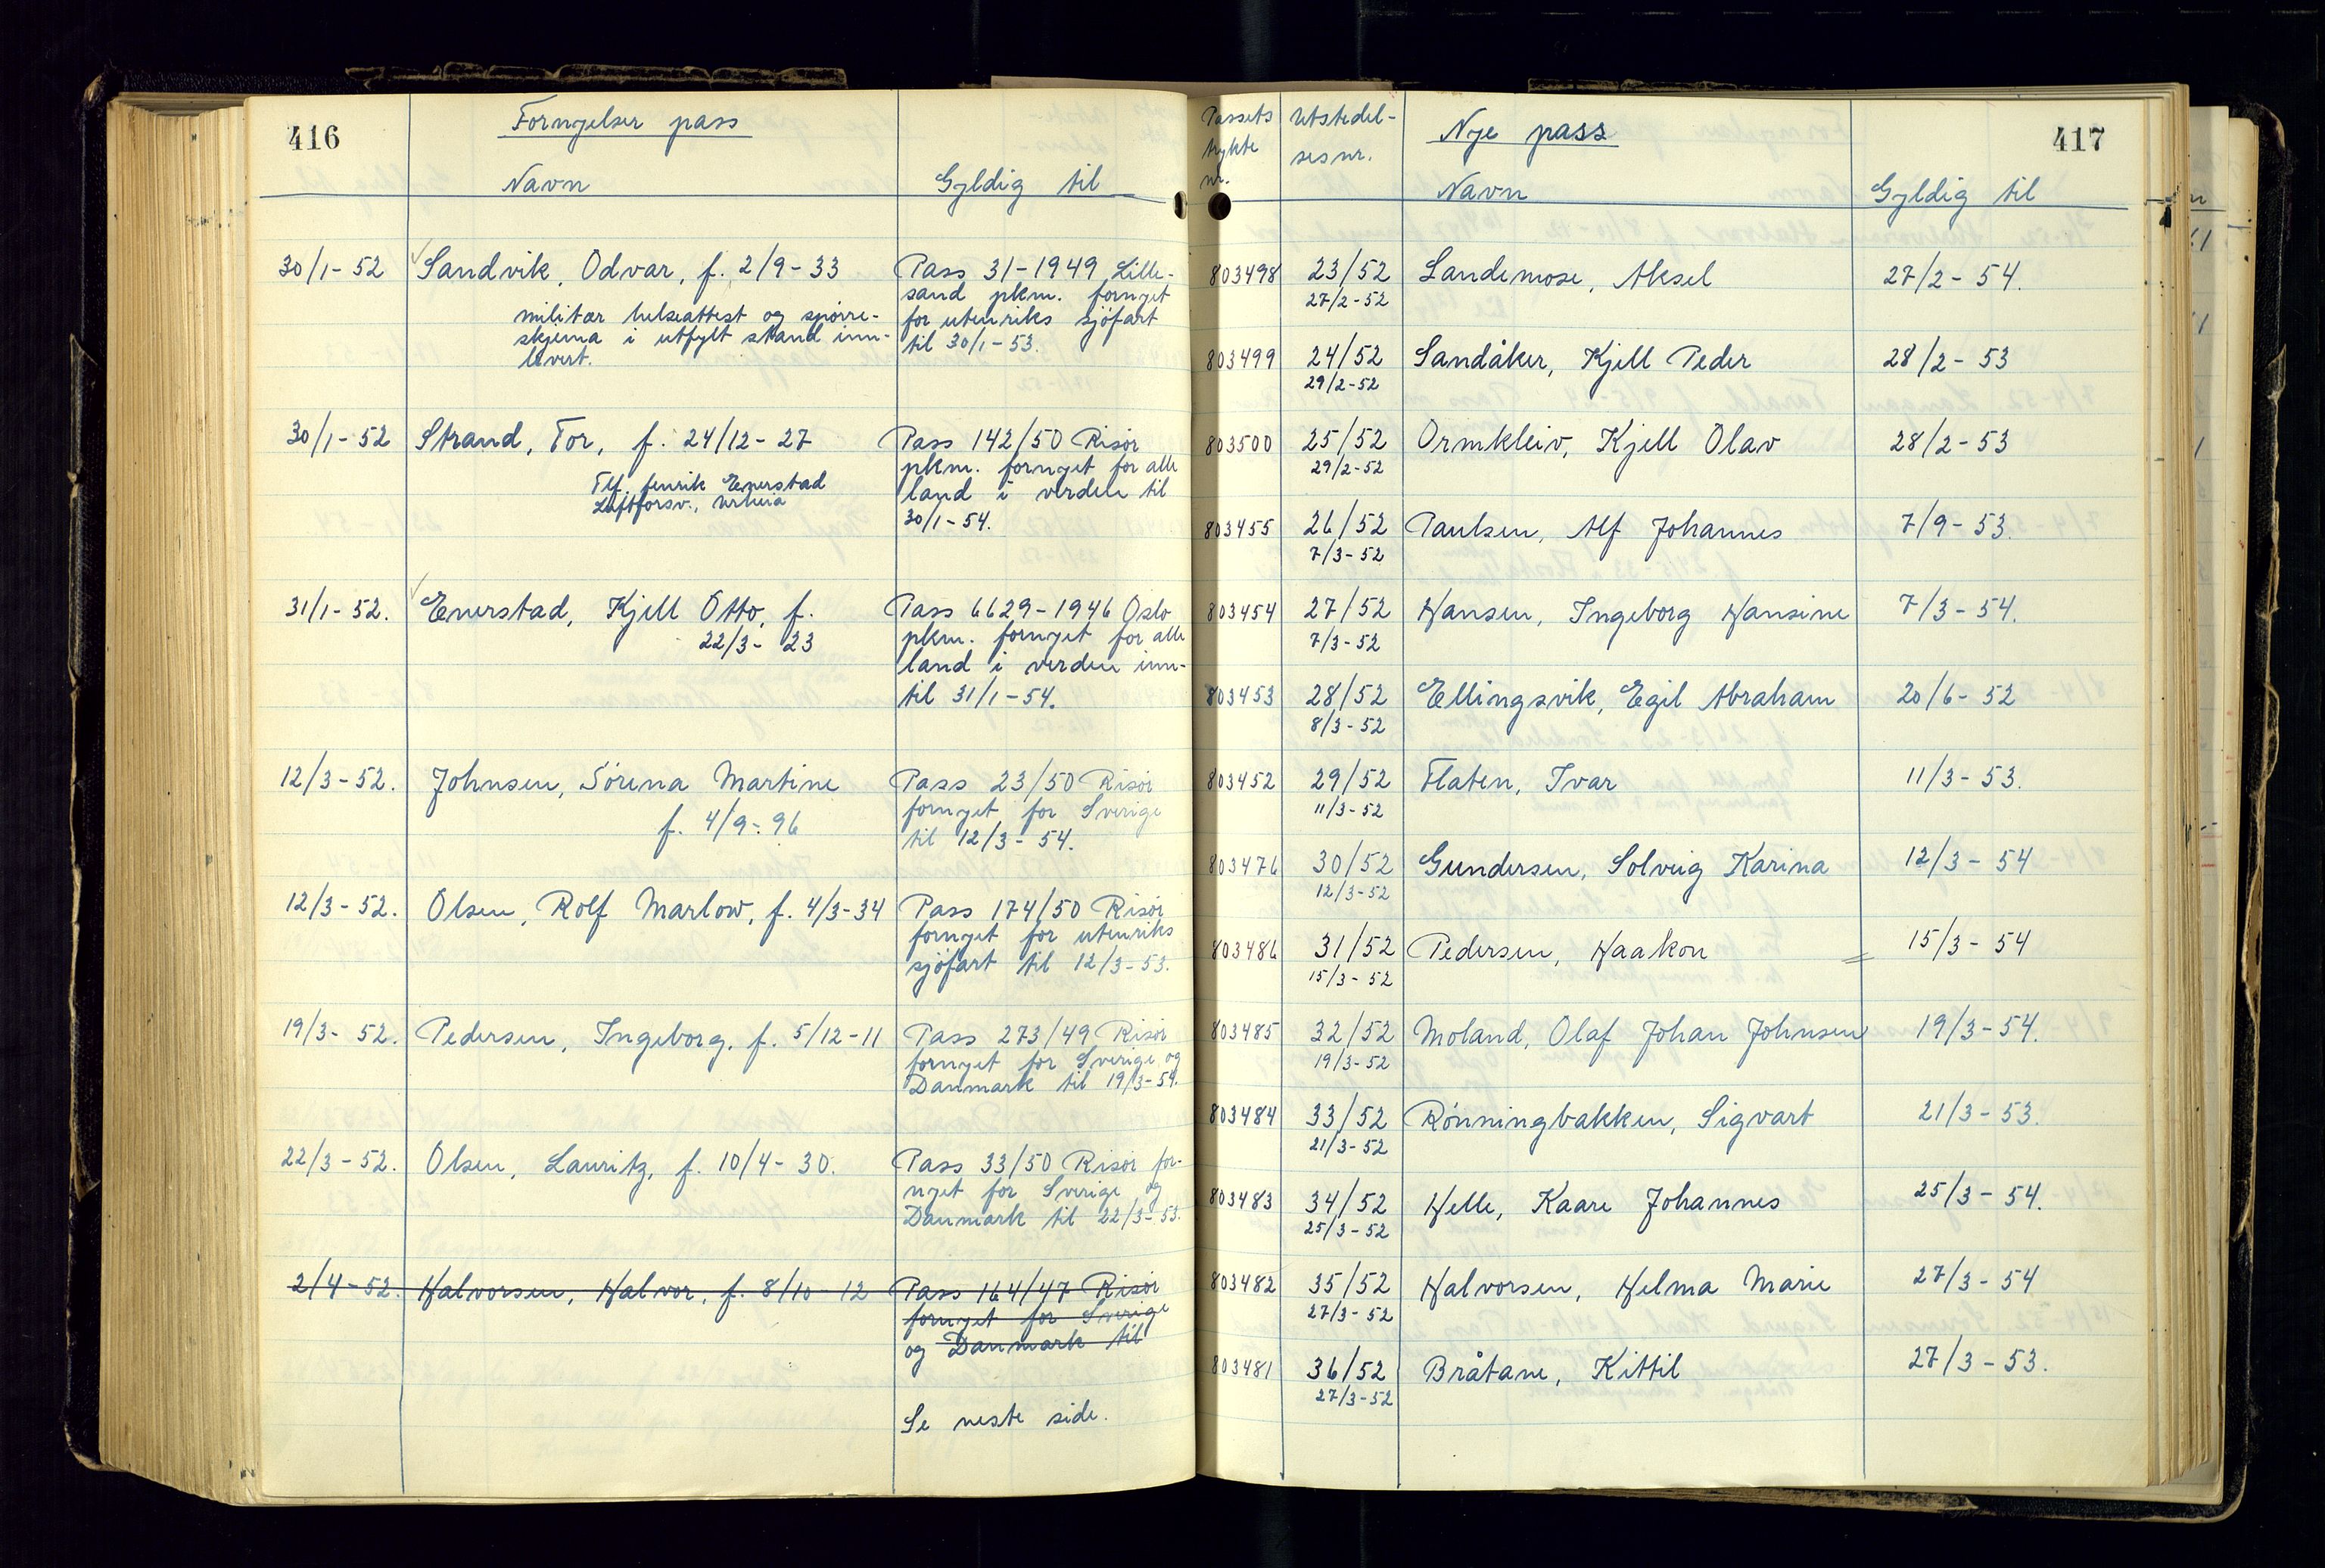 416
Fornyelser pass
Navn
Gyldig til
30/1-52 Sandvik, Odvar, f. 2/9-33
militær helseattest og spørre-
skjema i utfylt stand inn-
levert.
Pass 31-1949 Lille-
sand pkm. fornyet
for utenriks sjøfart
til 30/1-53.
30/1-52 Strand, Tor, f. 24/12-27
Tlf. fenrik Enerstad
Luftforsv.,
Pass 142/50 Risør
pkm. fornyet for alle
land i verden til
30/1-54.
31/1-52. Enerstad, Kjell Otto, f.
22/3-23
Pass 6629-1946 Oslo
pkm. fornyet for alle
land i verden inn-
til 31/1-54.
12/3-52. Johnsen, Sørena Martine
f. 4/9-96
Pass 23/50 Risør
fornyet for Sverige
til 12/3-54.
12/3-52. Olsen, Rolf Marlow, f. 4/3-34
Pass 174/50 Risør
fornyet for utenriks
sjøfart til 12/3-53.
19/3-52. Pedersen, Ingeborg, f. 5/12-11
Pass 273/49 Risør
fornyet for Sverige og
Danmark til 19/3-54.
22/3-52. Olsen, Lauritz, f. 10/4-30.
Pass 33/50 Risør for-
nyet for Sverige og
Danmark til 22/3-53.
2/4-52. Halvorsen, Halvor, f. 8/10-12
Pass 164/47 Risør
fornyet for Sverige
og Danmark til
Se neste side.
417
Passets
trykte
nr.
Utstedel-
ses nr.
Nye pass
Navn
Gyldig til
803498 23/52 Landemose, Aksel 27/2-54.
27/2-52
803499 24/52 Sandåker, Kjell Peder 28/2-53
29/2-52
803500 25/52 Ormkleiv, Kjell Olav 28/2-53
29/2-52
803455 26/52 Paulsen, Alf Johannes 7/9-53.
7/3-52
803454 27/52 Hansen, Ingeborg Hansine 7/3-54.
7/3-52
803453 28/52 Ellingsvik, Egil Abraham 20/6-52
8/3-52
803452 29/52 Flaten, Ivar 11/3-53.
11/3-52
803476 30/52 Gundersen, Solveig Karina 12/3-54
12/3-52
803486 31/52 Pedersen, Haakon 15/3-54
15/3-52
803485 32/52 Moland, Olaf Johan Johnsen 19/3-54.
19/3-52
803484 33/52 Rønningbakken, Sigvart 21/3-53.
21/3-52
803483 34/52 Helle, Kaare Johannes 25/3-54.
25/3-52
803482 35/52 Halvorsen, Helma Marie 27/3-54
27/3-52
803481 36/52 Bråtane, Kittil 27/3-53.
27/3-52